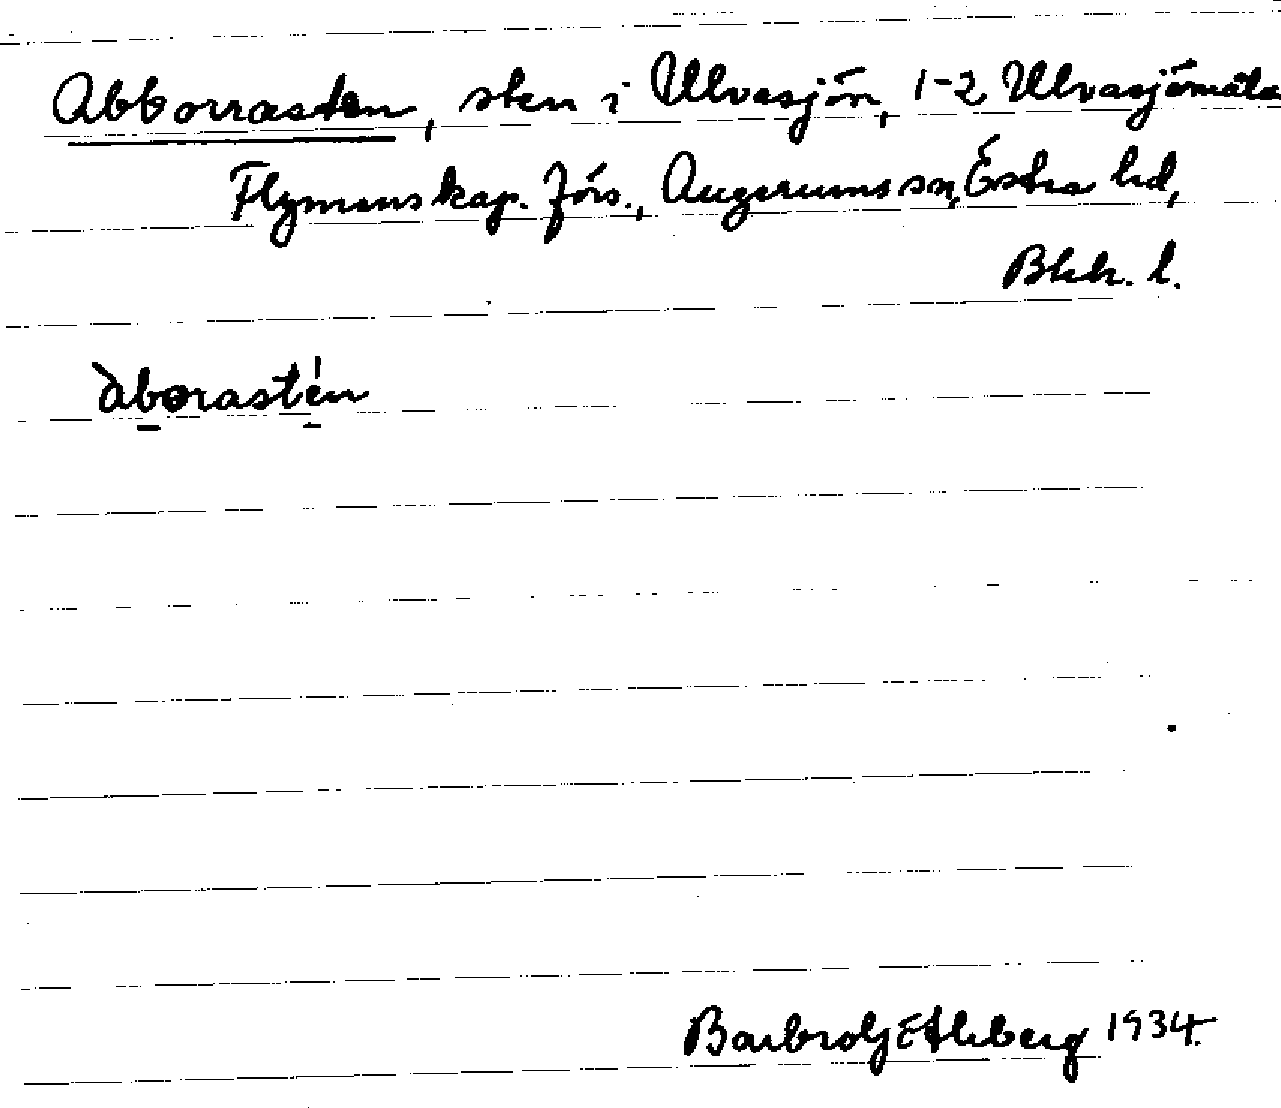 Abborrasten, sten i Ulvasjön, 1-2 Ulvasjömåla
Flymens kap. förs., Augerums sn, Östra hd,
Blek. l.
àborastén
1934.